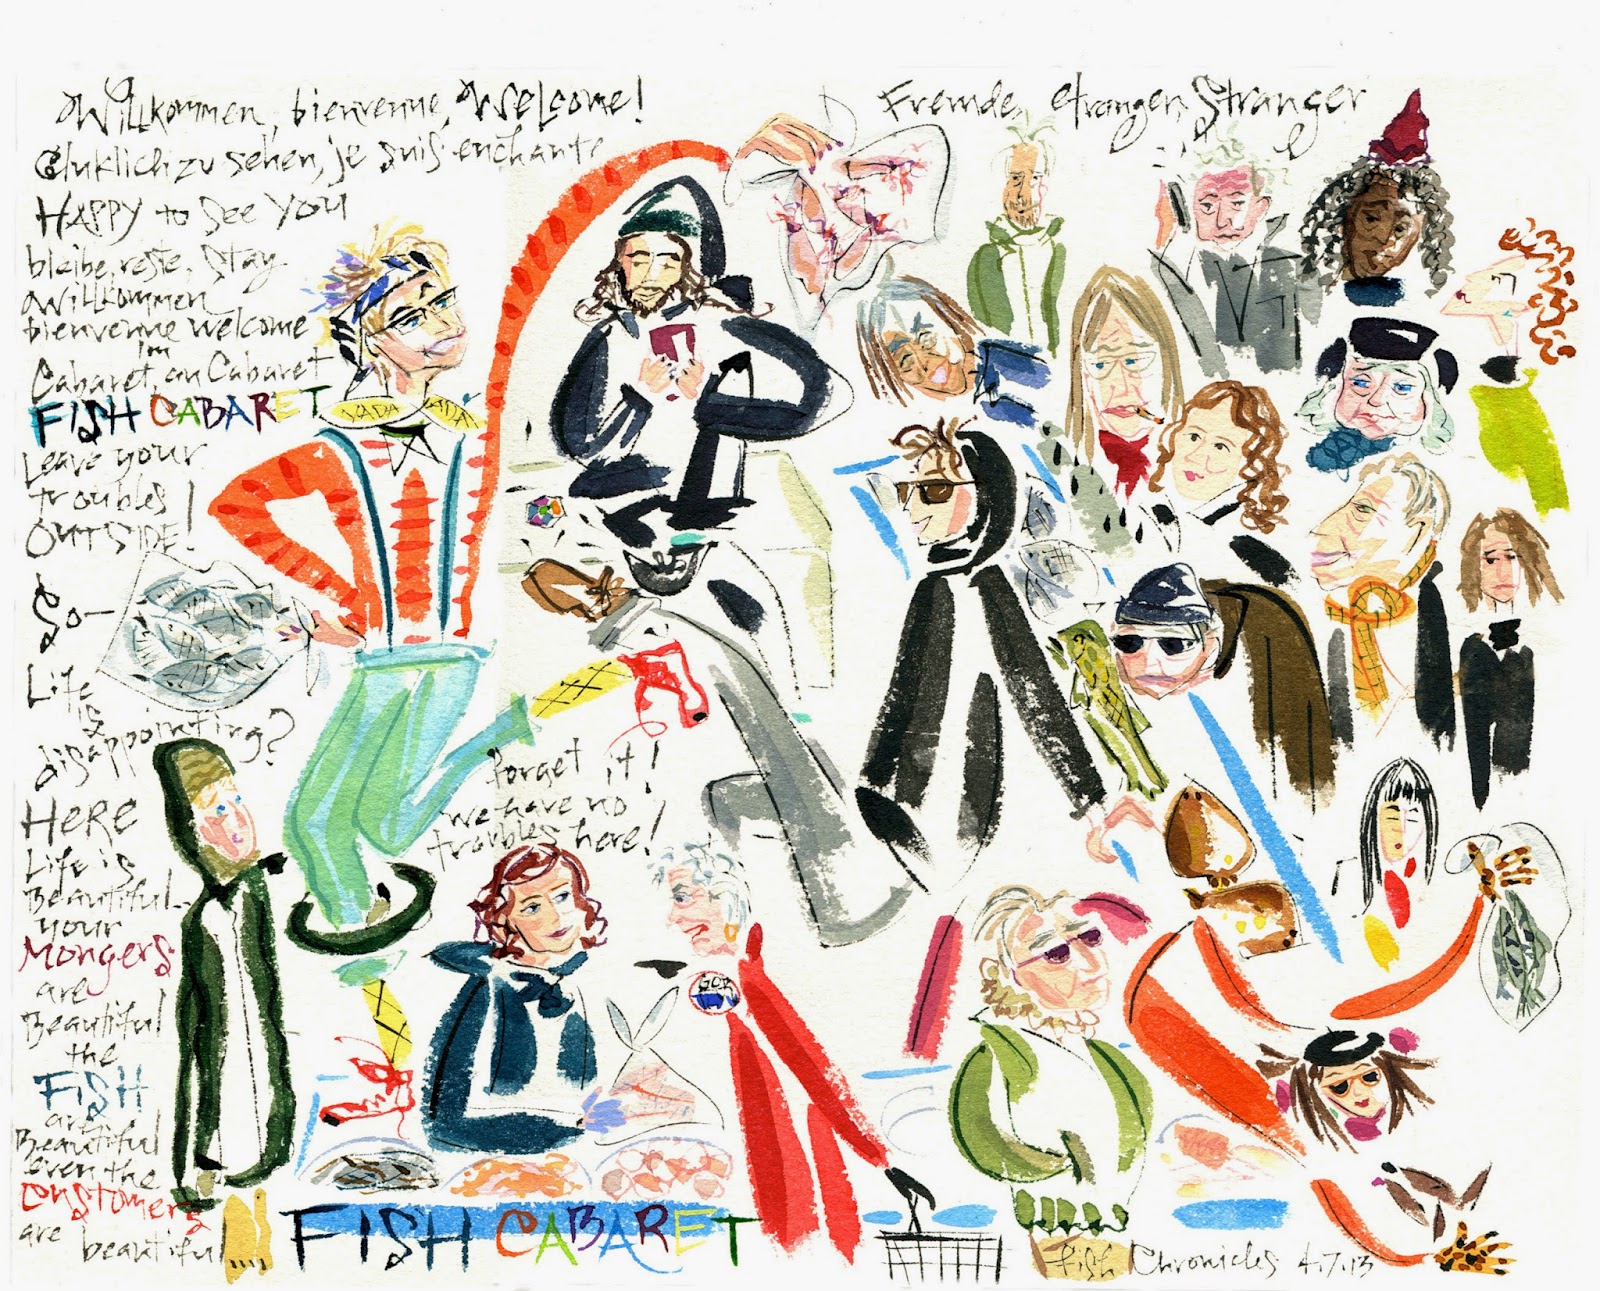 Willkommen, bienvenue, Welcome!
Gluklich zu sehen, je suis enchante
HAPPY to see YOU
bleibe, reste, stay
Willkommen
bienvenue welcome
Im
Cabaret, au Cabaret
FISH CABARET
Leave your
troubles
OUTSIDE!
So—
Life
is
disappointing?
HERE
Life is
Beautiful..
your
Mongers
are
Beautiful
the
FISH
are
Beautiful
even the
customers
are beautiful
Fremde, etranger, Stranger
YADA YADA
Forget it!
we have no
troubles here!
FISH CABARET
Fish Chronicles 4.7.13